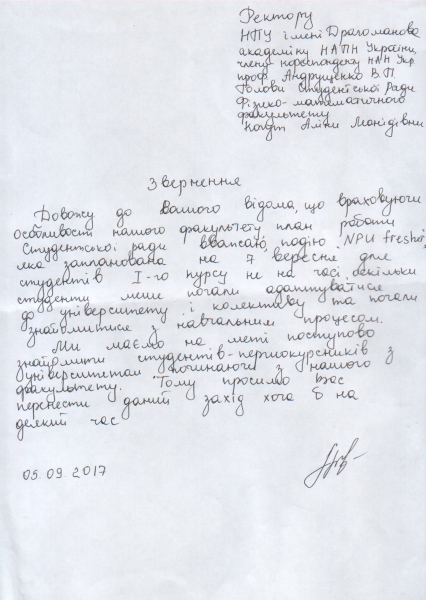 Ректору
НПУ імені Драгоманова
академіку НАПН України,
члену кореспонденту НАН Укр.
проф. Андрущенко В.П.
Голови Студентської Ради
Фізико-математичного
факультету
Аліни Леонідівни
Звернення
Довожу до Вашого відома, що враховуючи
особливості нашого факультету, план роботи
Студентської ради вважаю, подію „NPU freshɪ",
яка запланована на 7 вересня для
студентів І-го курсу не на часі, оскільки
студенти лише почали адаптуватися
до університету і колективу та почали
знайомитися з навчальним процесом.
Ми маємо на меті поступово
знайомити студентів-першокурсників з
університетом починаючи з нашого
факультету. Тому просимо Вас
перенести даний захід хоча б на
деякий час
05.09.2017